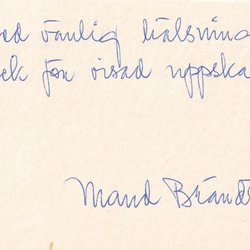 ed vänlig hälsning
ck för visad uppska
Maud Brandt